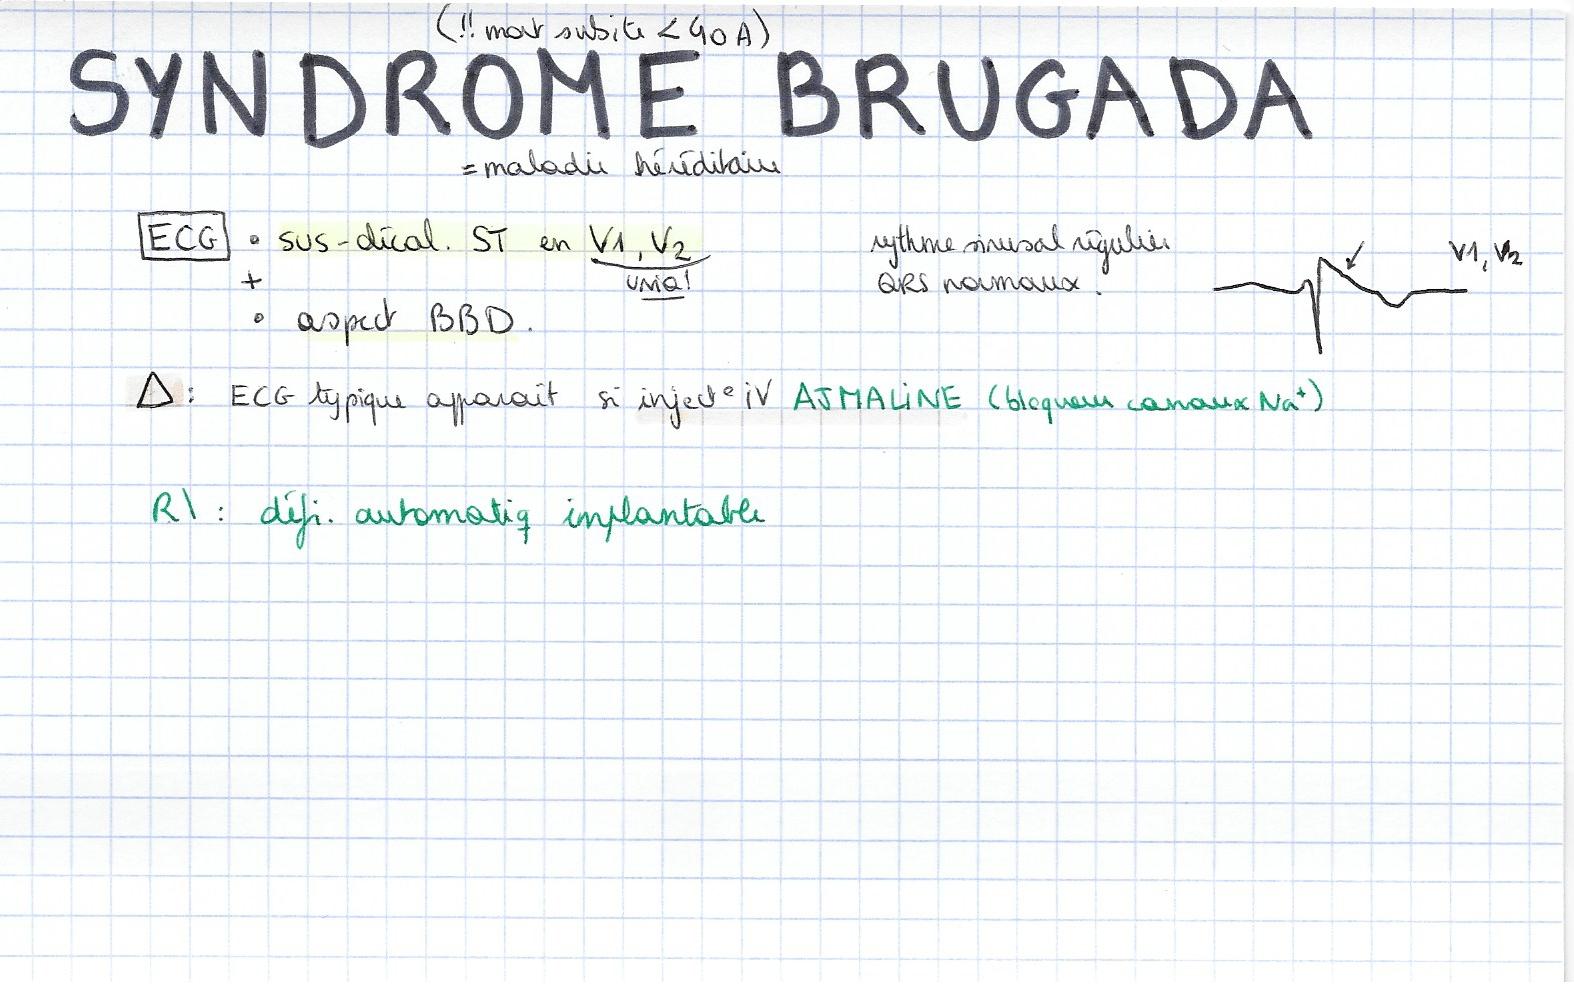 (!! mort subite < 40 A)
SYNDROME BRUGADA
= maladie héréditaire
ECG • sus-décal. ST en V1, V2
rythme sinusal régulier
V1, V2
+
QRS normaux.
• aspect BBD.
Δ : ECG typique apparait si inject° IV AJMALINE (bloqueur canaux Na⁺)
R\ : défi. automatiq implantable